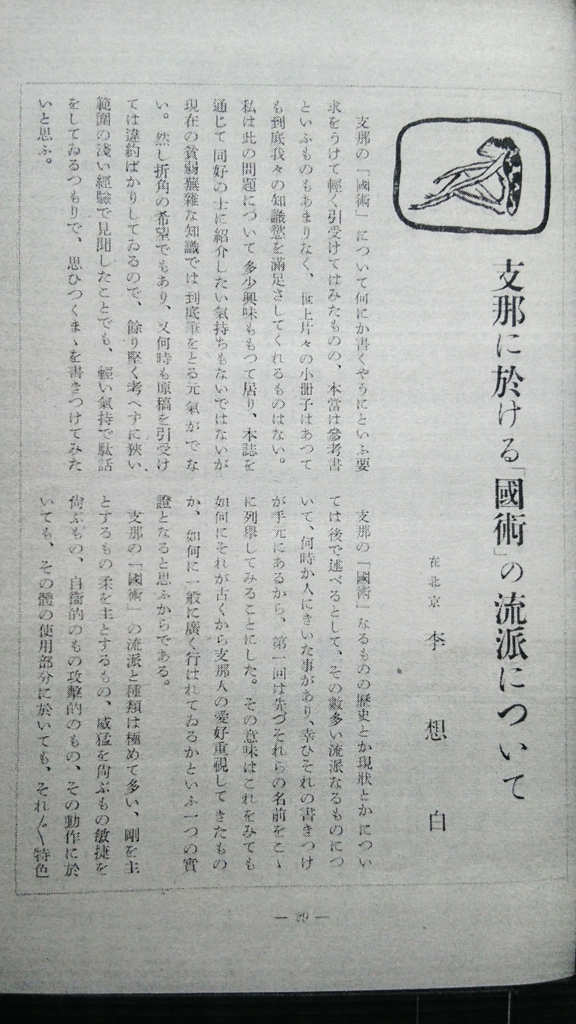 支那に於ける「國術」の流派について
在北京 李想白
支那の「國術」について何にか書くやうにといふ要
求をうけて輕く引受けてはみたものの、本當は參考書
といふものもあまりなく、世上片々の小册子はあつて
も到底我々の知識慾を滿足さしてくれるものはない。
私は此の問題について多少興味ももつて居り、本誌を
通じて同好の士に紹介したい氣持ちもないではないが
現在の貧弱蕪雜な知識では到底筆をとる元氣がでな
い。然し折角の希望でもあり、又何時も原稿を引受け
ては違約ばかりしてゐるので、餘り堅く考へずに狹い
範圍の淺い經驗で見聞したことでも、輕い氣持で駄話
をしてゐるつもりで、思ひつくまゝを書きつけてみた
いと思ふ。
支那の「國術」なるものの歷史とか現狀とかについ
ては後で述べるとして、その數多い流派なるものにつ
いて、何時か人にきいた事があり、幸ひそれの書きつけ
が手元にあるから、第一回は先づそれらの名前をこゝ
に列擧してみることにした。その意味はこれをみても
如何にそれが古くから支那人の愛好重視してきたもの
か、如何に一般に廣く行はれてゐるかといふ一つの實
證となると思ふからである。
支那の「國術」の流派と種類は極めて多い、剛を主
とするもの柔を主とするもの、威猛を尙ぶもの敏捷を
尙ぶもの、自衞的のもの攻擊的のもの、その動作に於
いても、その體の使用部分に於いても、それ〴〵特色
— 29 —